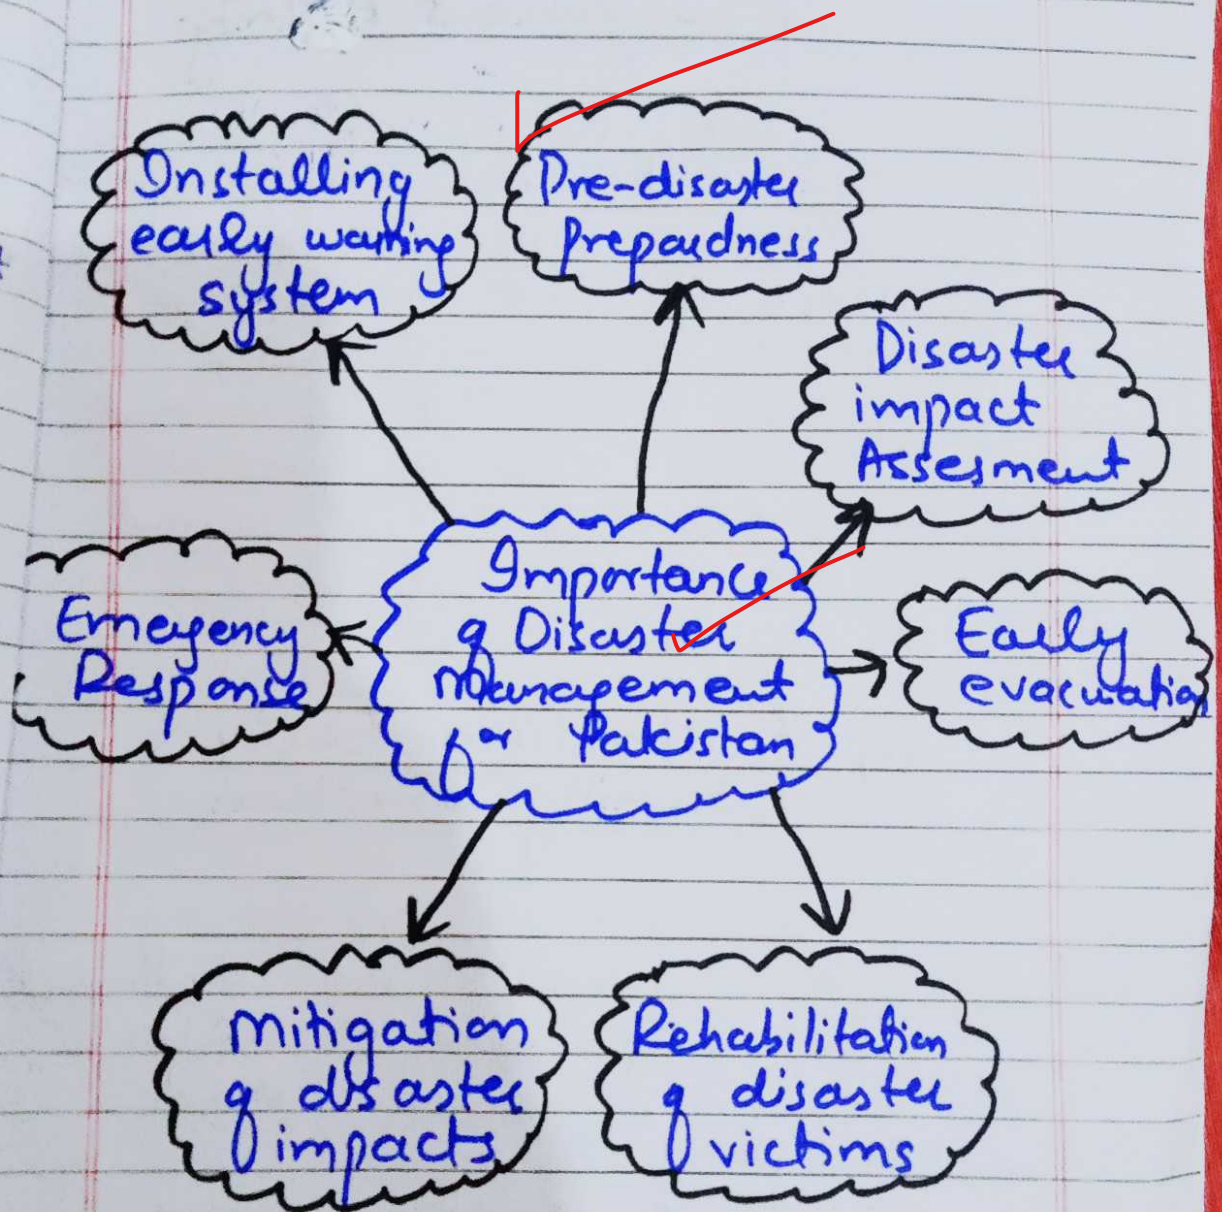 Installing
early warning
system
Pre-disaster
prepardness
Disaster
impact
Assesment
Importance
of Disaster
Management
for Pakistan
Emergency
Response
Early
evacuation
Mitigation
of disaster
impacts
Rehabilitation
of disaster
victims